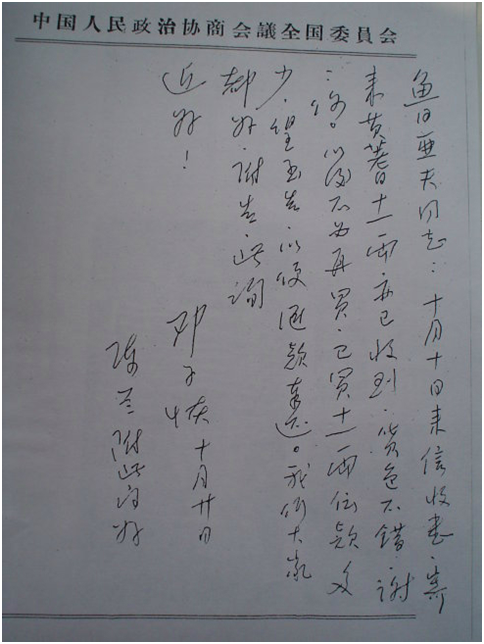 中国人民政治协商会議全国委員会
鲁亚夫同志：十月十日来信收悉·寄
来黄蓍十一两·亦已收到·货色不错·谢
谢你。以后不必再买·已买十一两价款多
少·望告·以便汇款奉还。我们大家
都好·附告·此询
近好！
邓子恢十月廿日
陈兰附此问好